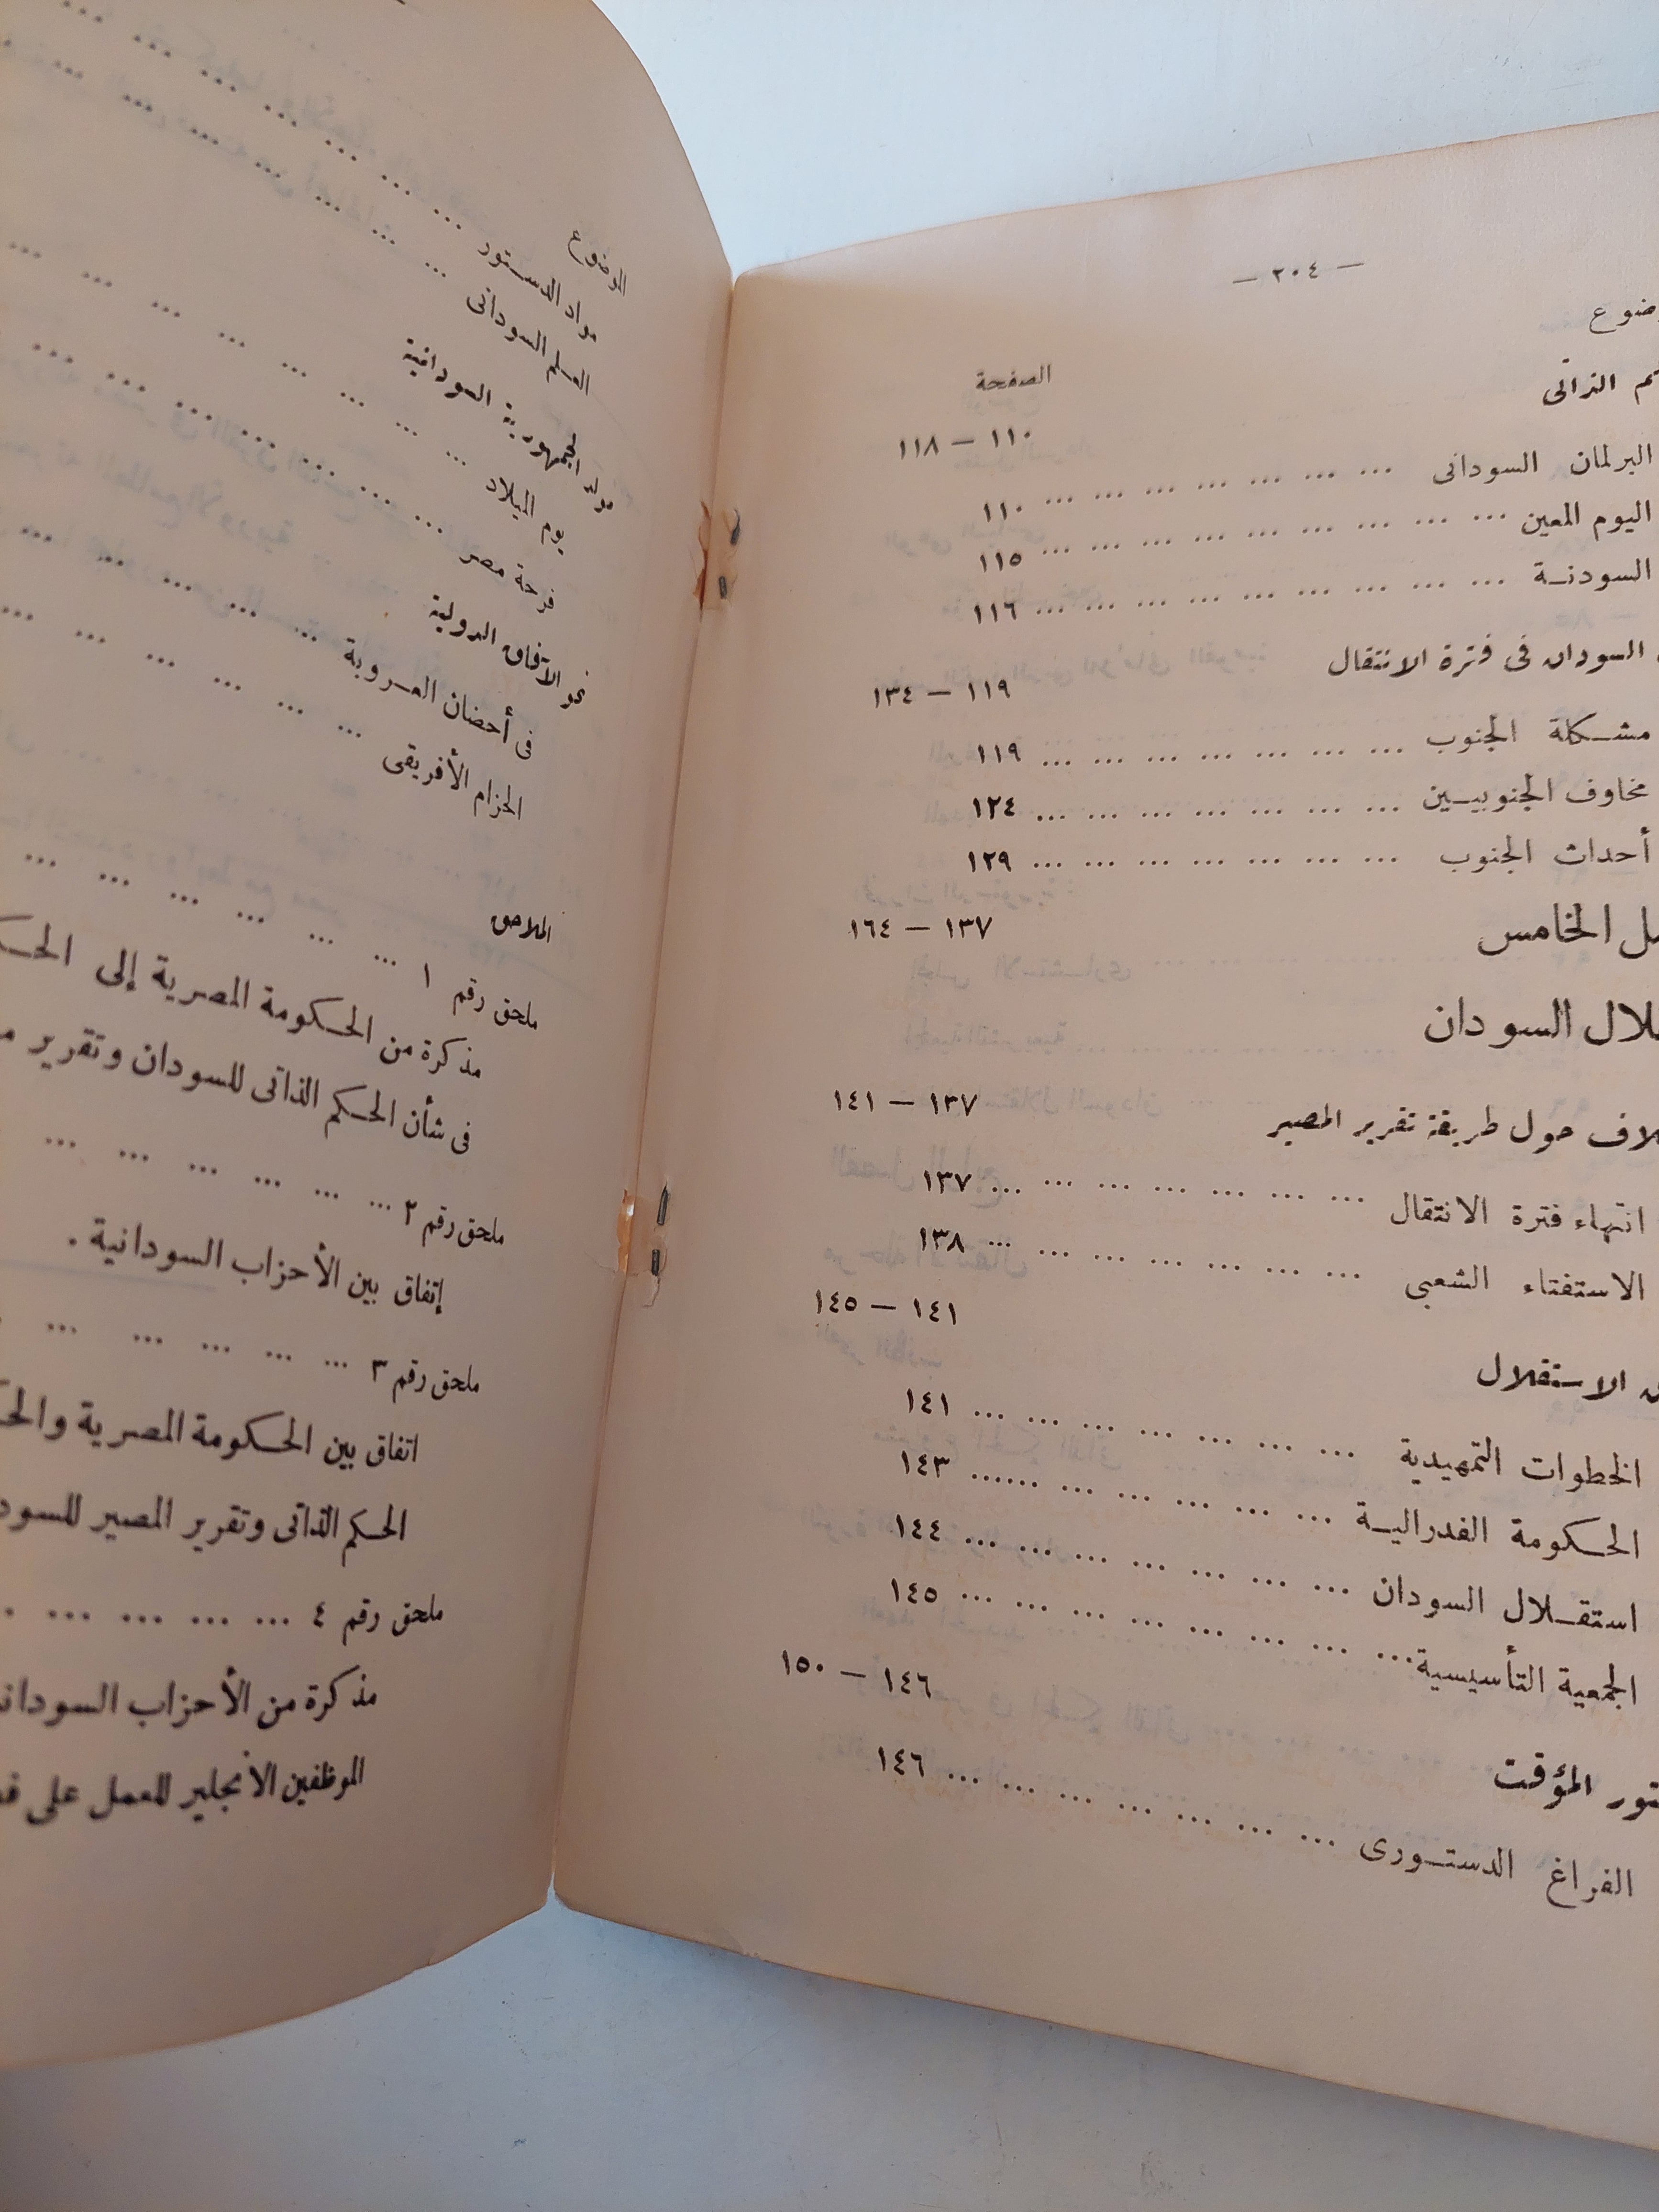 — ٢٠٤ —
الصفحة
الذاتى ١١٠ — ١١٨
البرلمان السودانى ... ... ... ... ... ... ... ١١٠
اليوم المعين ... ... ... ... ... ... ... ... ... ١١٥
السودنـة ... ... ... ... ... ... ... ... ... ... ١١٦
السودان فى فترة الانتقال ١١٩ — ١٣٤
مشـكلة الجنوب ... ... ... ... ... ... ... ١١٩
مخاوف الجنوبيـين ... ... ... ... ... ... ... ١٢٤
أحداث الجنوب ... ... ... ... ... ... ... ١٢٩
الخامس ١٣٧ — ١٦٤
السودان
حول طريقة تقرير المصير ١٣٧ — ١٤١
انتهاء فترة الانتقال ... ... ... ... ... ... ... ١٣٧
الاستفتاء الشعبى ... ... ... ... ... ... ... ١٣٨
الاستقلال ١٤١ — ١٤٥
الخطوات التمهيدية ... ... ... ... ... ... ... ١٤١
الحـكومة الفدراليـة ... ... ... ... ... ...... ١٤٣
استقـلال السودان ... ... ... ... ... ... ... ... ١٤٤
الجمعية التأسيسية ... ... ... ... ... ... ... ... ... ١٤٥
المؤقت ١٤٦ — ١٥٠
الفراغ الدستـورى ... ... ... ... ... ... ... ١٤٦
الموضوع
مواد الدسـتور ... ... ... ... ... ... ... ...
العـلم السودانى ... ... ... ... ... ... ...
مولد الجمهورية السودانية
يوم الميلاد ... ... ... ... ... ... ... ...
فرحة مصر ... ... ... ... ... ... ... ...
نحو الآفاق الدولية
فى أحضان العـروبة ... ... ... ... ... ...
الحزام الأفريقى ... ... ... ... ... ... ...
الملاحق
ملحق رقم ١ ... ... ... ... ... ... ...
مذكرة من الحـكومة المصرية إلى
فى شأن الحـكم الذاتى للسودان وتقرير
ملحق رقم ٢ ... ... ... ... ... ...
إتفاق بين الأحزاب السودانية .
ملحق رقم ٣ ... ... ... ... ...
اتفاق بين الحـكومة المصرية
الحـكم الذاتى وتقرير المصير
ملحق رقم ٤ ... ... ... ... .
مذكرة من الأحزاب
الموظفين الانجليز للعمل على